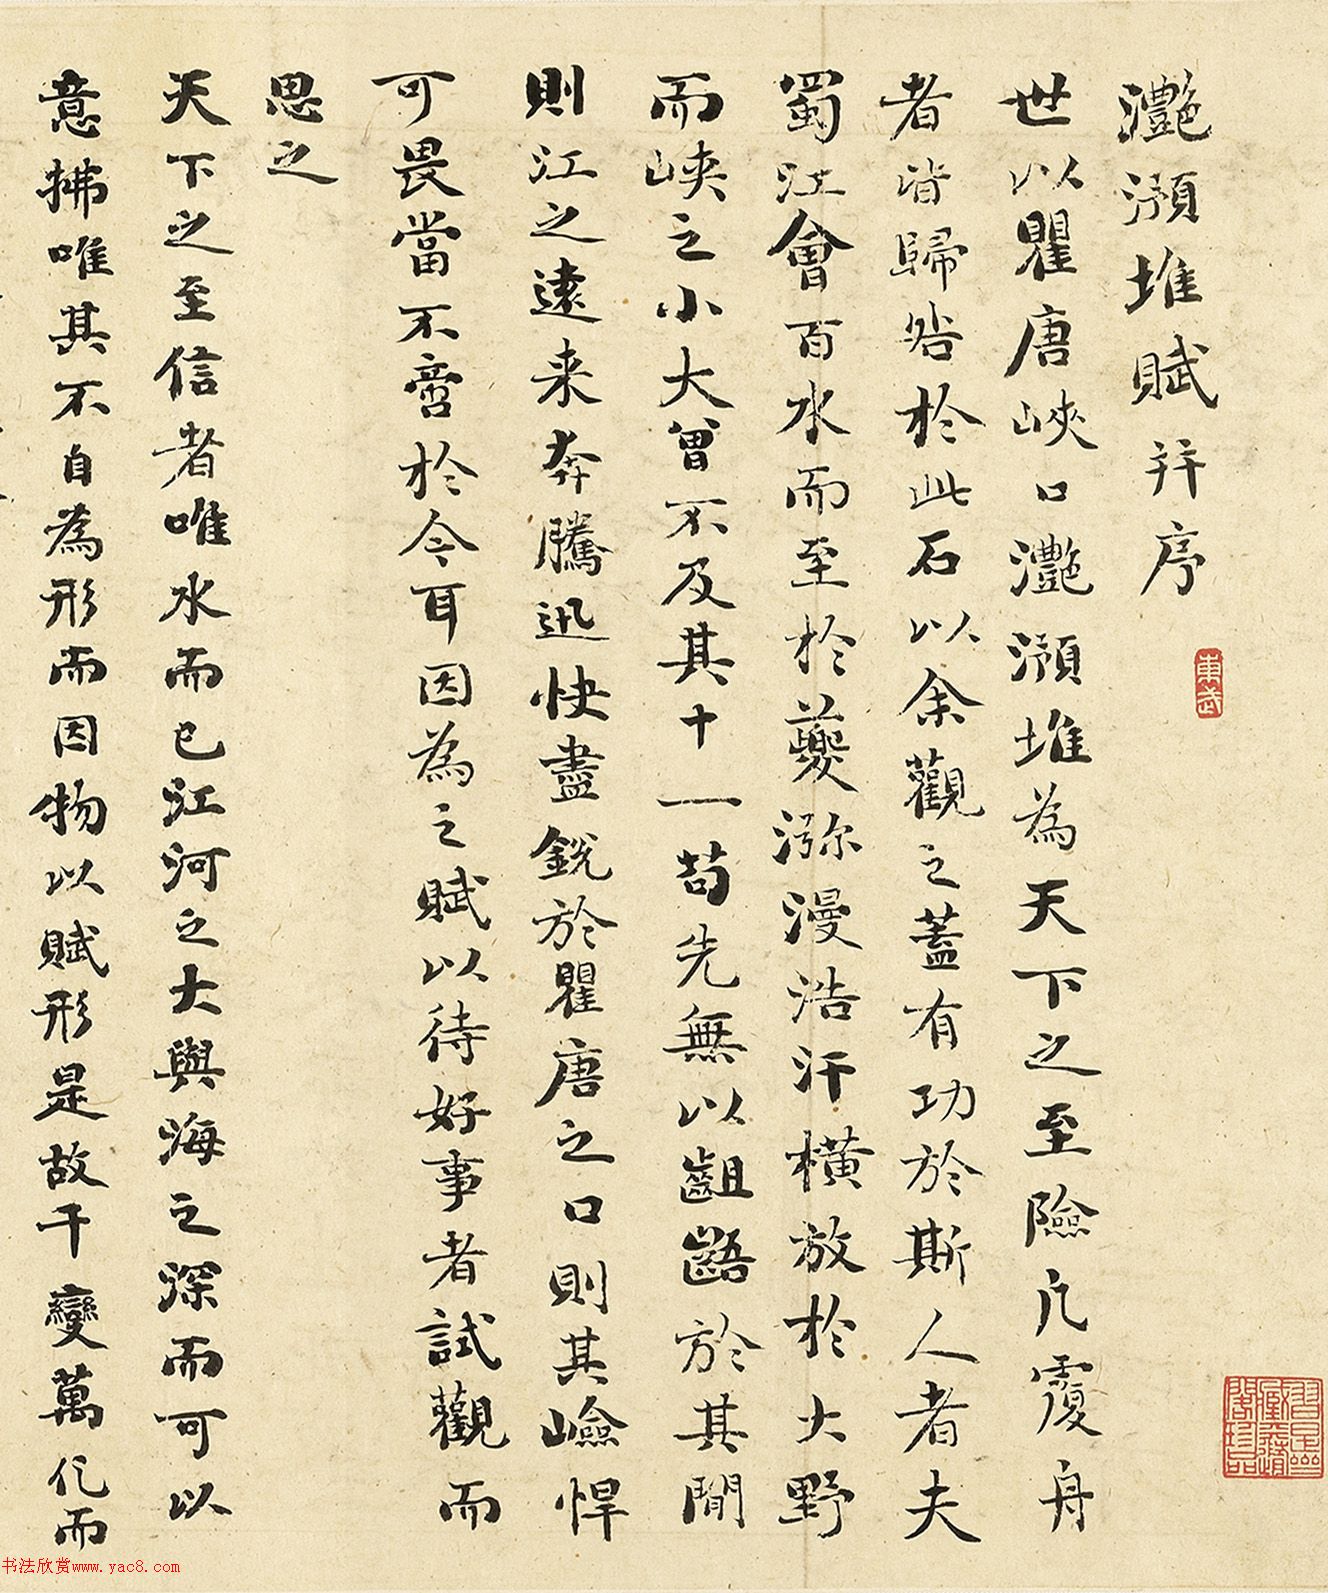 灩澦堆賦并序
世以瞿唐峽口灩澦堆為天下之至險凡覆舟
者皆歸咎於此石以余觀之蓋有功於斯人者夫
蜀江會百水而至於夔㳽漫浩汗橫放於大野
而峽之小大曾不及其十一苟先無以齟齬於其間
則江之遠来奔騰迅快盡銳於瞿唐之口則其嶮悍
可畏當不啻於今耳因為之賦以待好事者試觀而
思之
天下之至信者唯水而已江河之大與海之深而可以
意拂唯其不自為形而因物以賦形是故千變萬化而
東武
书法欣赏www.yac8.com